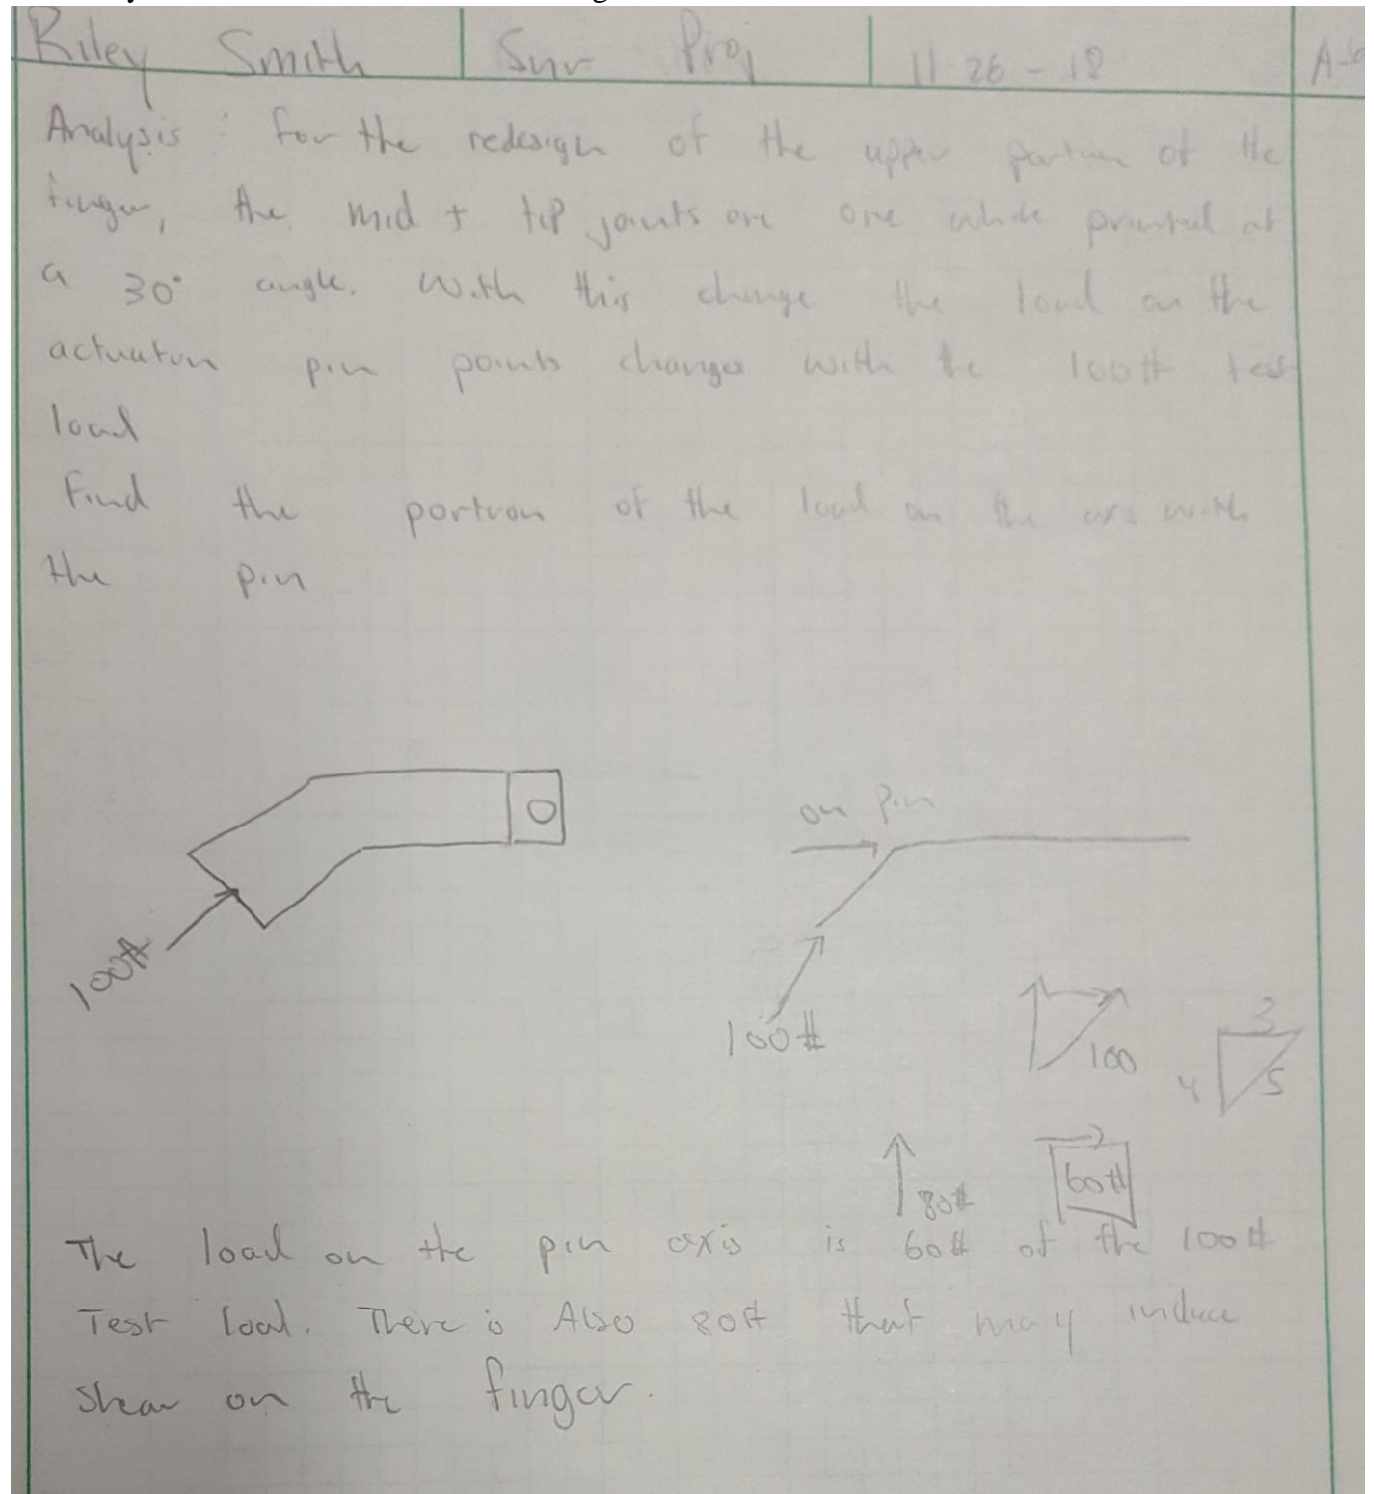 Riley Smith Snr Proj 11 26 - 18
Analysis : for the redesign of the upper portion of the
finger, the mid + tip joints are one while printed at
a 30° angle. With this change the load on the
actuation pin points changes with the 100# test
load
Find the portion of the load on the axis with
the pin
on Pin
100#
100#
100
3
4
5
80#
60#
The load on the pin axis is 60# of the 100#
Test load. There is Also 80# that may induce
Shear on the finger.